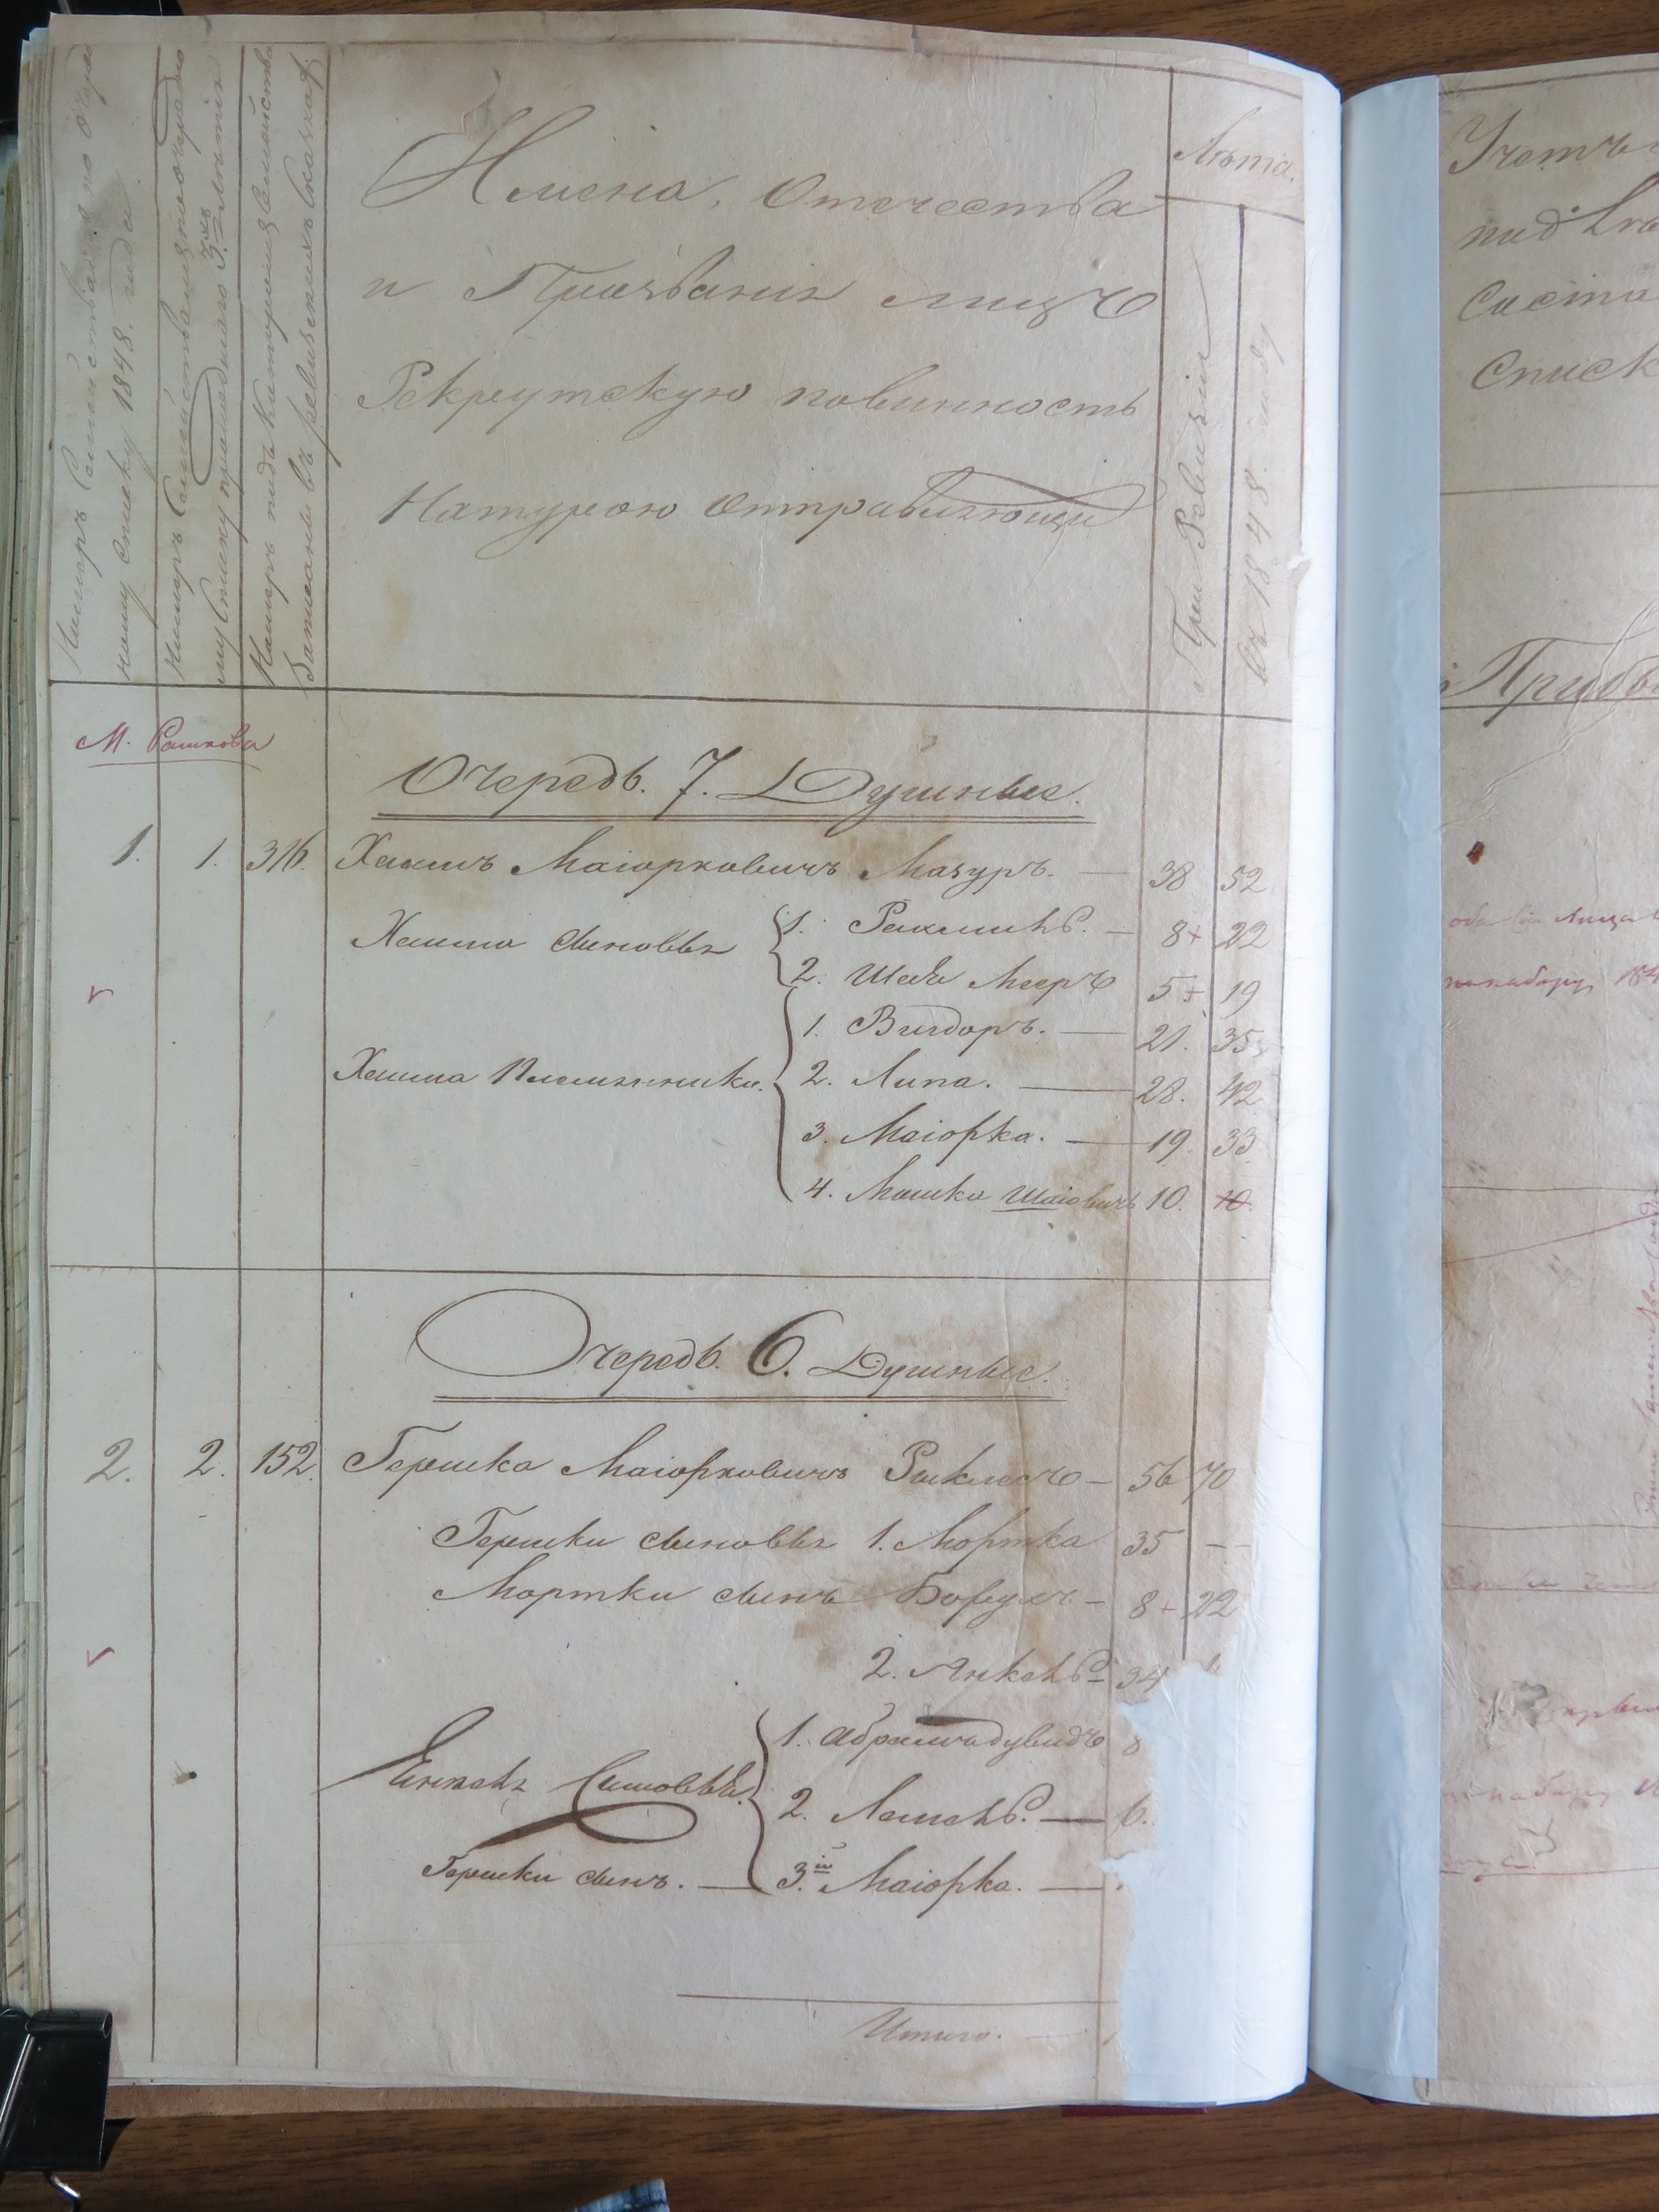 Нумеръ Семействамъ по очеред
ному списку 1848. года
Нумеръ Семействамъ по очередно
му Списку прошедшаго 3хъ лѣтія
Нумеръ подъ которымъ Семейства
Записаны въ ревизскихъ сказках
Имена, Отечества
и Прозванія лицъ
Рекрутскую повинность
Натурою Отправляющи
Лѣта.
При Ревизіи
Въ 1848. году
М. Рашкова
Очередь. 7. Душные.
1. 1. 316. Хаимъ Маіорковичъ Мазуръ. — 38 52
Хаима сыновья 1. Рахмиль. — 8+ 22
2. Шева Мееръ 5+ 19
Хаима Племянники. 1. Вигдоръ. — 21. 35
2. Липа. — 28. 42
3. Маіорка. — 19. 33
4. Мошко Шаіовичъ 10. 10.
Очередь. 6. Душные.
2. 2. 152. Гершка Маіорковичъ — 56 70
Гершки сыновья 1. Мортка 35 —
Мортки сынъ Борухъ — 8+ 22
2. Янкель — 34
Сыновья. 1. Абрамъ дувидъ 8
2. Лейзель. — 6.
Гершки сынъ. — 3.й Маіорка. —
Итого. —
Учетъ
Состо
Списк
Прибы